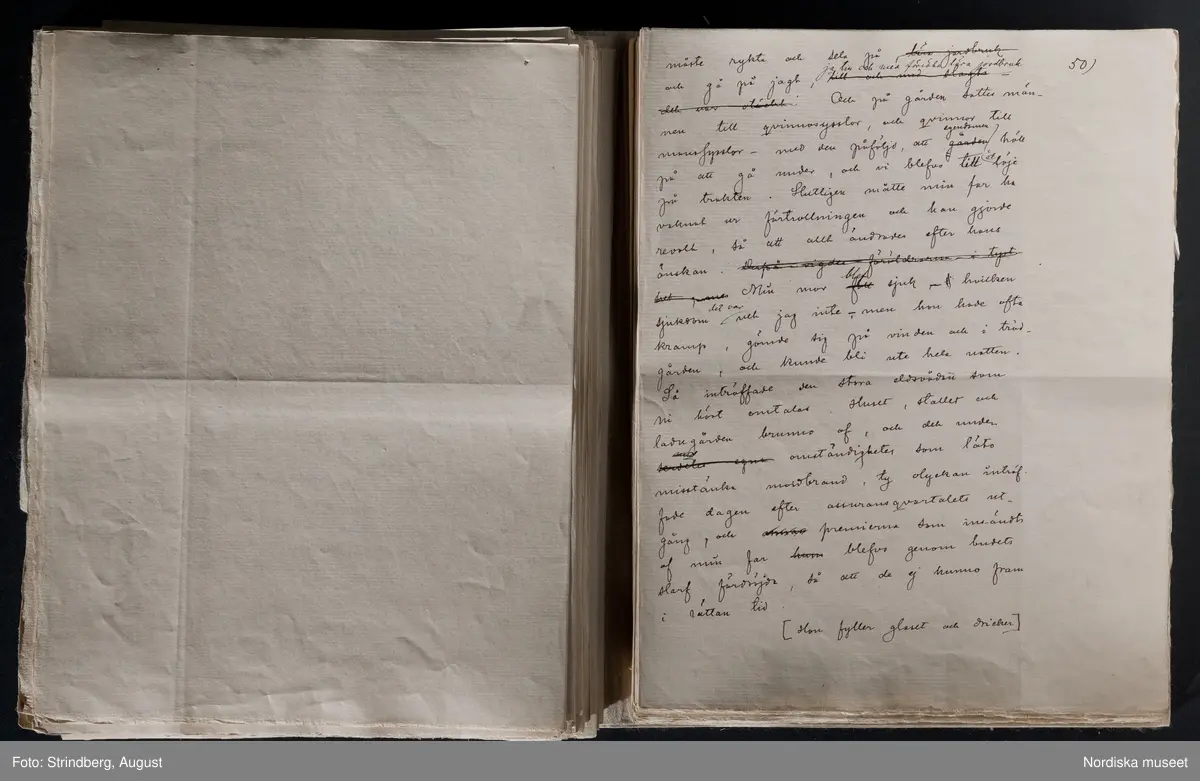 50)
måste rykta och sela på, lära jordbruk
ja till och med försöka lära jordbruk
och gå på jagt, till och med slagta –
det var otäckt! Och på gården sattes män-
nen till qvinnosysslor, och qvinnor till
egendomen
manssysslor – med den påföljd, att gården höll
på att gå under, och vi blefvo till ett löje
på trakten. Slutligen måtte min far ha
vaknat ur förtrollningen och han gjorde
revolt, så att allt ändrades efter hans
önskan. Derpå vigdes föräldrarne i tyst
blef
het Min mor sjuk – hvilken
det var
sjukdom vet jag inte – men hon hade ofta
kramp, gömde sig på vinden och i träd-
gården, och kunde bli ute hela natten.
Så inträffade den stora eldsvådan som
ni hört omtalas. Huset, stallet och
ladugården brunno af, och det under
omständigheter som läto
misstänka mordbrand, ty olyckan inträf-
fade dagen efter assuransqvartalets ut-
gång, och premierna som insändts
af min far blefvo genom budets
slarf fördröjda, så att de ej hunno fram
i rättan tid.
[Hon fyller glaset och dricker]
Foto: Strindberg, August
Nordiska museet